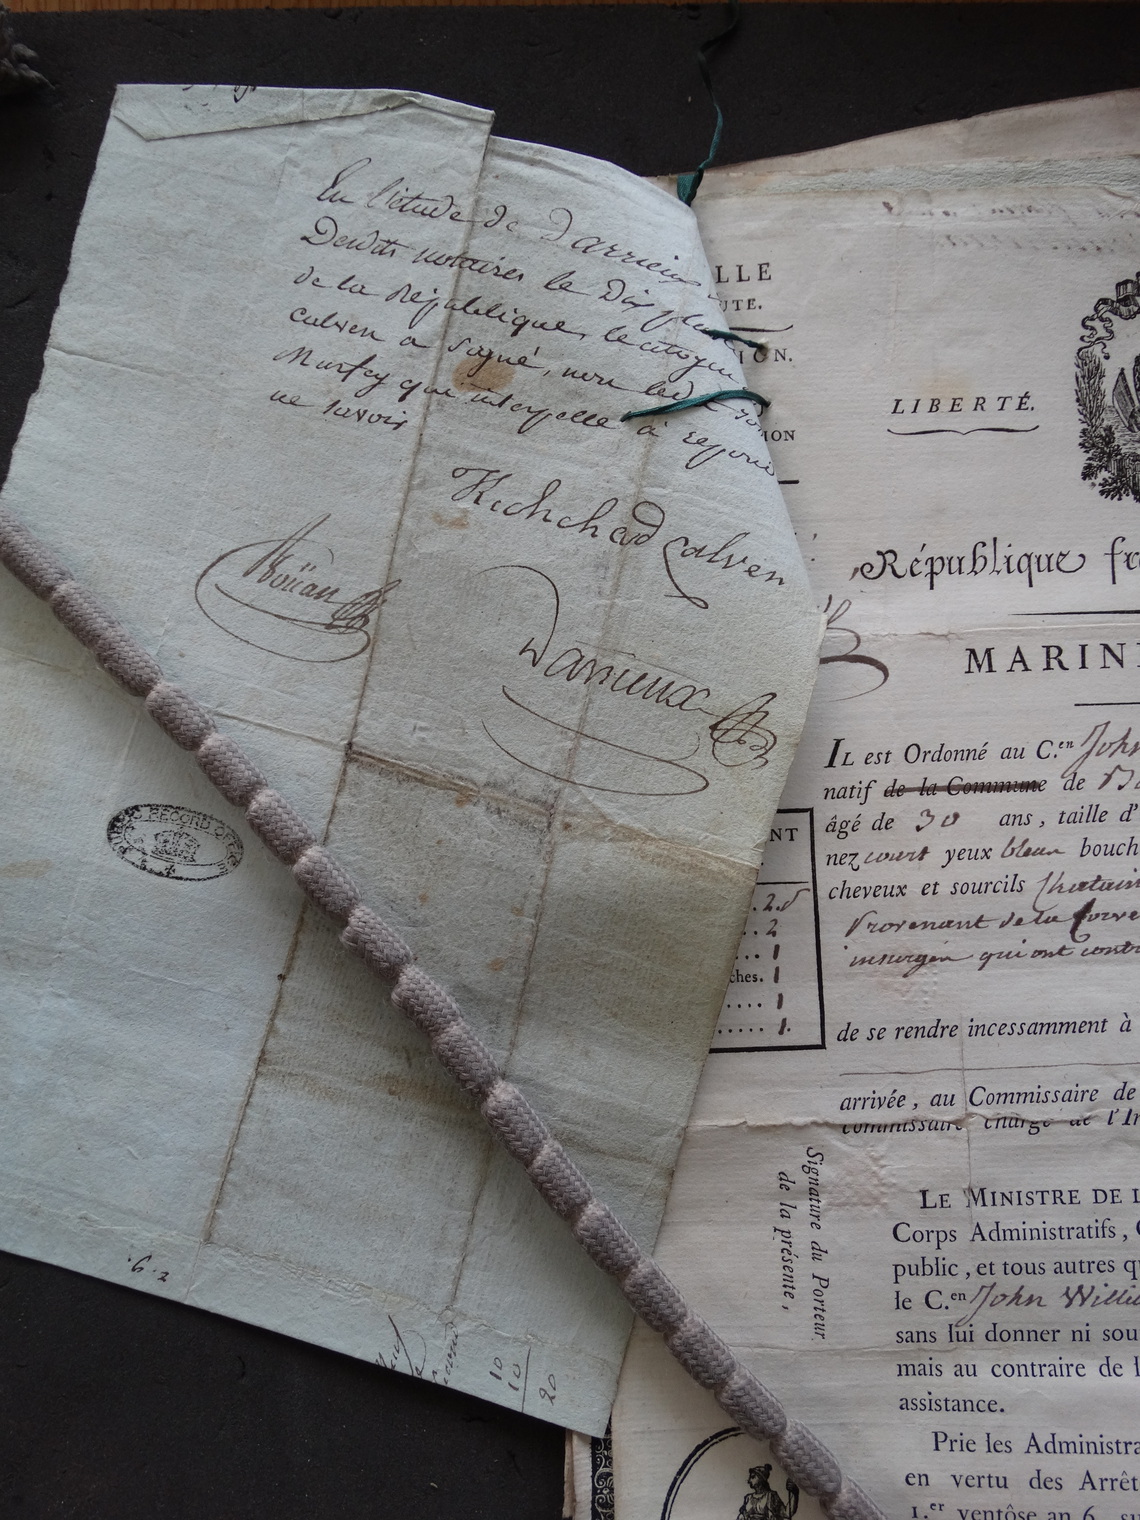 En l'étude de Darrieux
Desdits notaires le Dix
de la République, le citoyen
calven a signé, non led
Murfey qui interpellé à
ne savoir
Richchad calven
Boüan
Darrieux
PUBLIC RECORD OFFICE
10
10
20
LLE
UTE.
ION.
ION
LIBERTÉ.
République fr
MARIN
IL est Ordonné au C.en John
natif de la Commune de
âgé de 30 ans, taille d'
nez court yeux bleux bouch
cheveux et sourcils Chatain
Provenant de la
insurgée qui ont contr
de se rendre incessamment à
arrivée, au Commissaire de
commissaire chargé de l'In
NT
2
1
ches. 1
1
1.
Signature du Porteur
de la présente,
LE MINISTRE DE L
Corps Administratifs,
public, et tous autres q
le C.en John Willi
sans lui donner ni sou
mais au contraire de l
assistance.
Prie les Administra
en vertu des Arrêt
1.er ventôse an 6, su